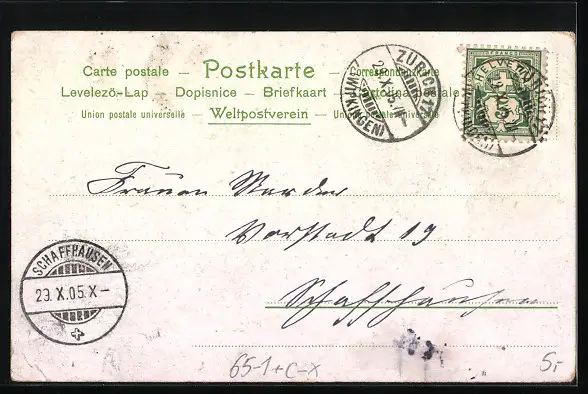 Carte postale – Postkarte – Correspondenzkarte
Levelezö-Lap – Dopisnice – Briefkaart – Cartolina postale
Union postale universelle – Weltpostverein – Union postale universelle
ZÜRICH
(WIPKINGEN)
FRANCO
HELVETIA
Frauen
Vorstadt 19
Schaffhausen
SCHAFFHAUSEN
23.X.05.X–
65-1+C-X
5,-